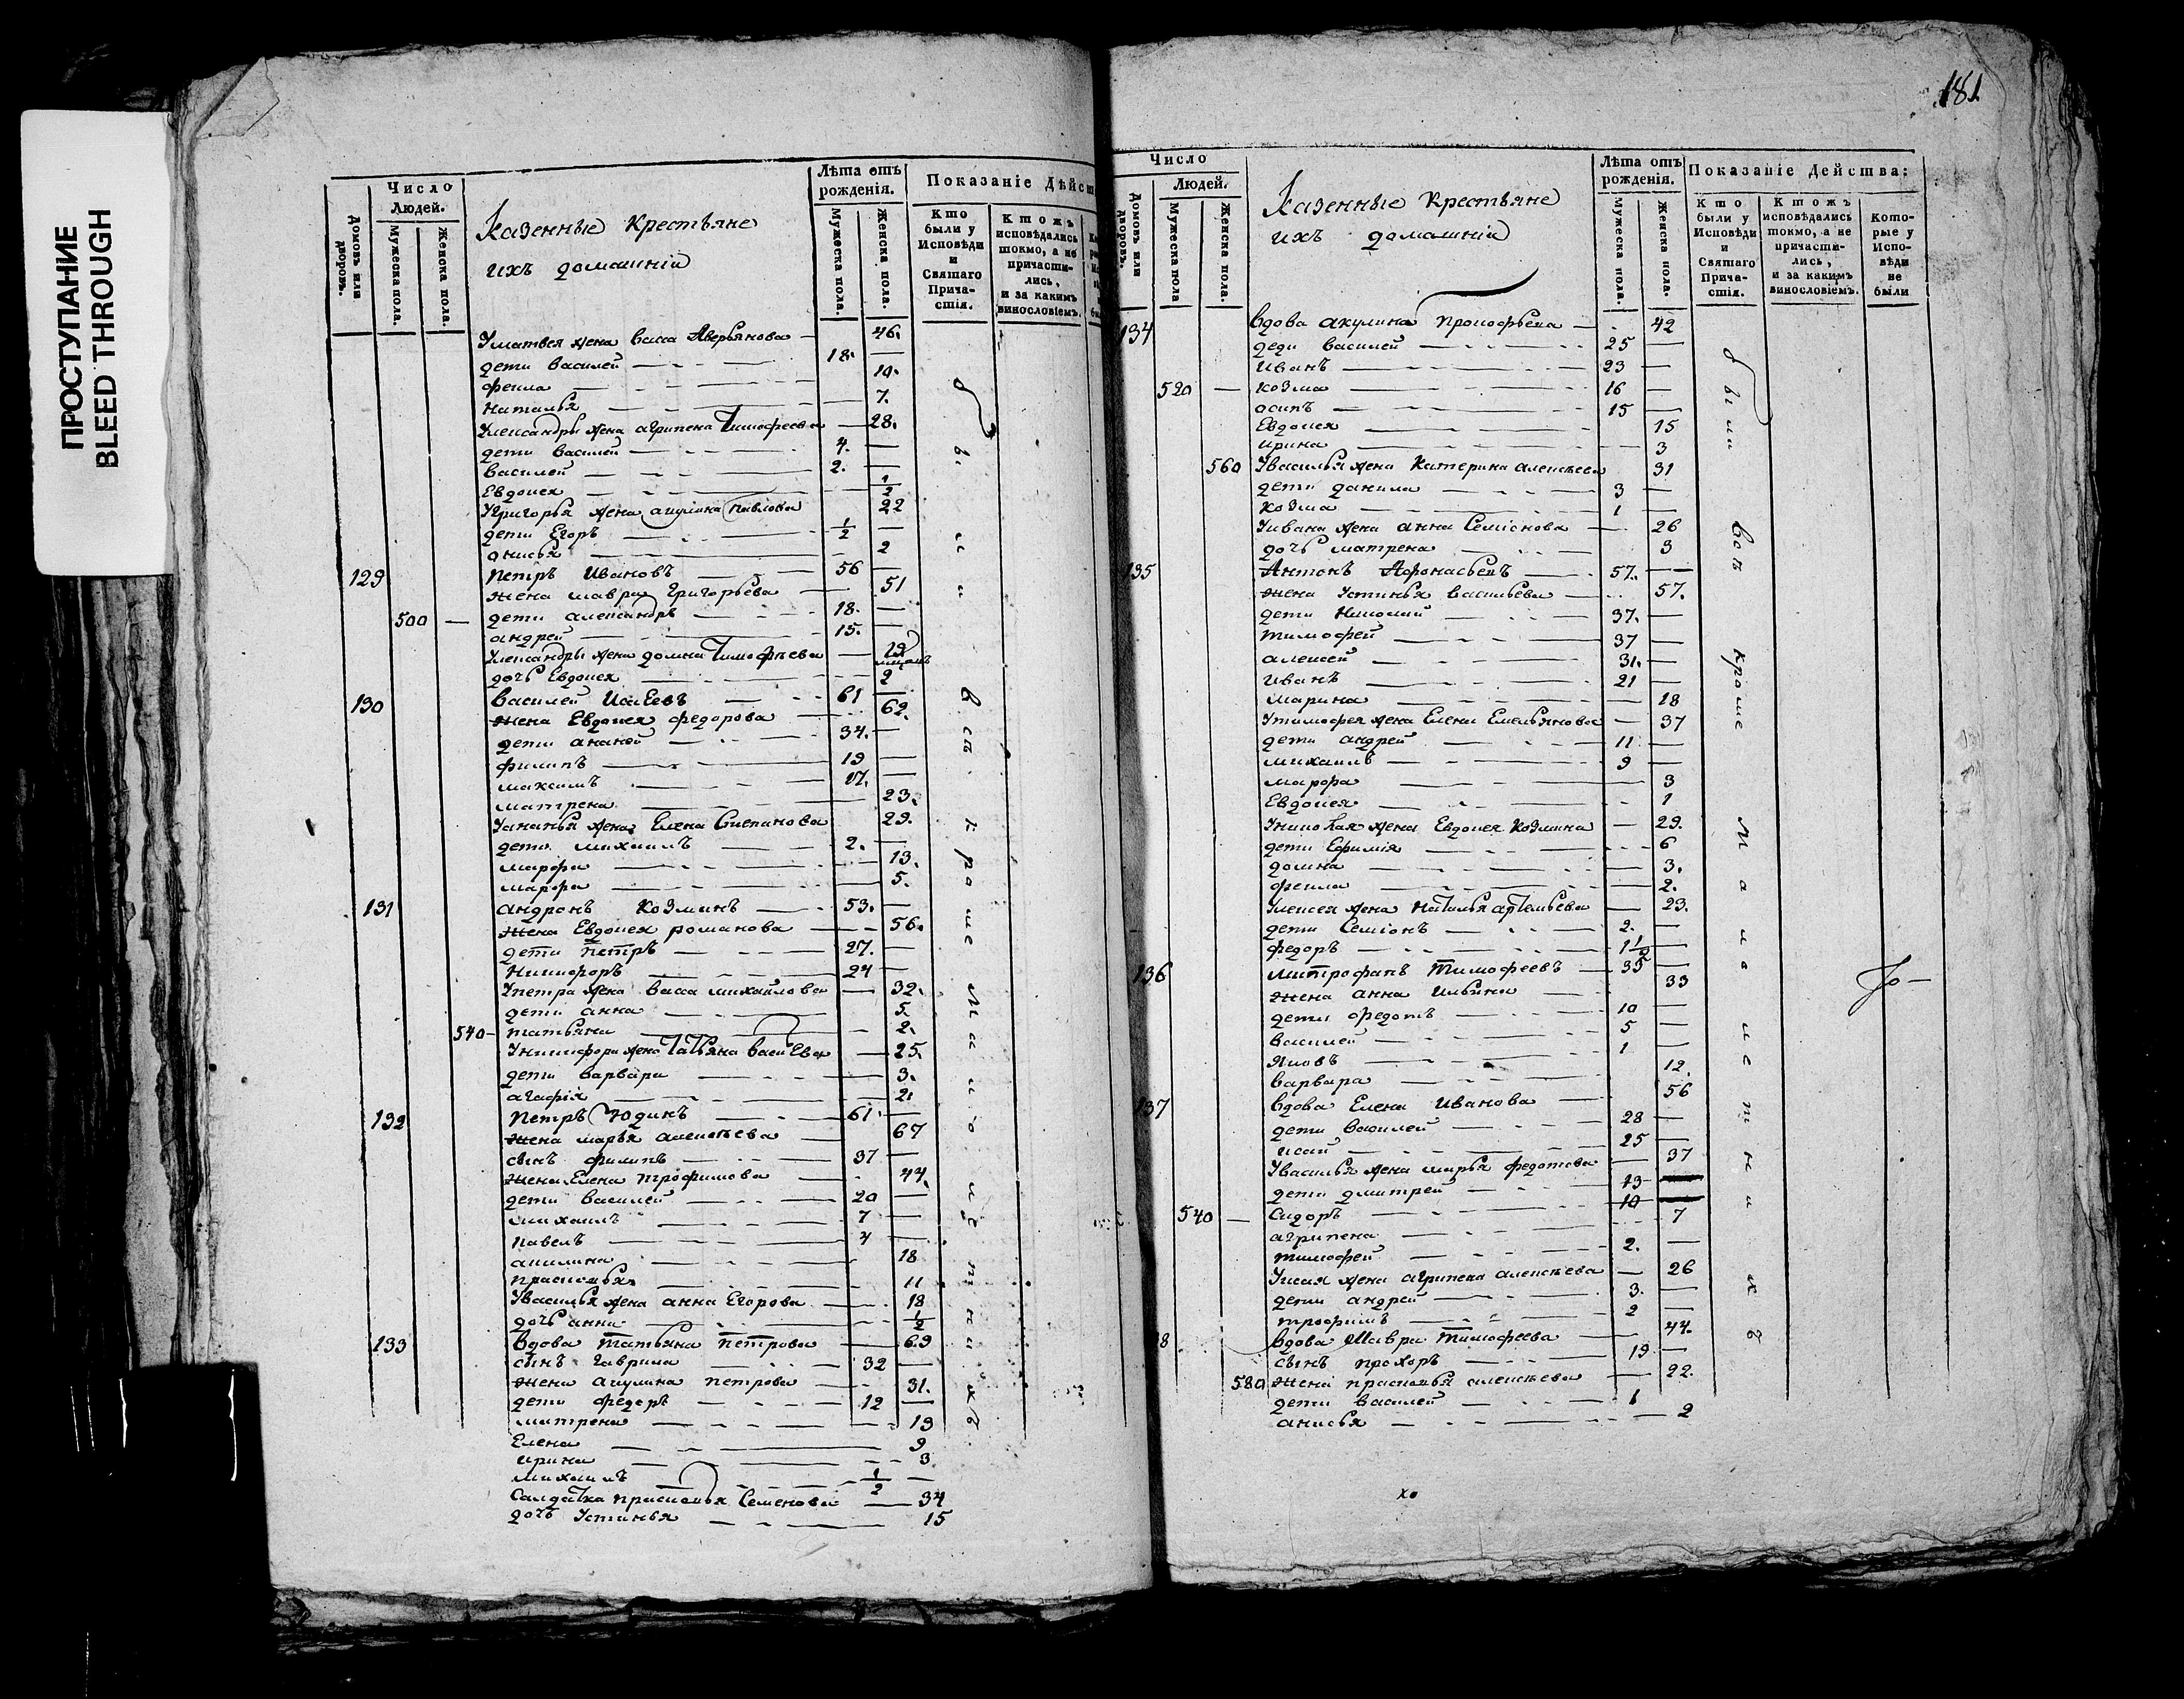 ПРОСТУПАНИЕ
BLEED THROUGH
Число
Людей.
Домовъ или дворовъ.
Мужеска пола.
Женска пола.
Казенные крестьяне
ихъ домашнiи
Лѣта отъ
рожденiя.
Мужеска пола.
Женска пола.
Показанiе Дѣйст
Кто
были у
Исповѣди
и
Святаго
Прича-
стiя.
Ктожъ
исповѣдались
токмо, а не
причасти-
лись,
и за какимъ
винословiемъ.
Уматвея жена васса Аверьянова 46.
дети василей 18.
фекла 10.
наталья 7.
Улександры жена агрипена Тимофеева 28.
дети василей 4.
василей 2.
Евдокея 1/2
Угригорья жена акулина павлова 22
дети Егоръ 1/2
анисья 2
129 петръ Ивановъ 56
жена мавра григорьева 51
500 дети александръ 18.
андрей 15.
Улександры жена домна Тимофѣева 19
дочь Евдокея 2
130 василей ИсаЕевъ 61
жена Евдокея федорова 62.
дети ананей 34.
филипъ 19
максимъ 17.
матрена 23.
Уананья жена Елена Степанова 29.
дети михаилъ 2.
марфа 13.
марфа 5.
131 андронъ козминъ 53.
жена Евдокея романова 56.
дети петръ 27.
Никифоръ 24
Упетра жена васса михайлова 32.
дети анна 5.
540 татьяна 2.
Уникифора жена Татьяна васиЕва 25.
дети варвара 3.
агафiя 2.
132 петръ Юдинъ 61.
жена марья алексѣева 67
сынъ филипъ 37
жена Елена трофимова 44.
дети василей 20
михаилъ 7
павелъ 4
акилина 18
прасковья 11
Увасилья жена анна Егорова 18
дочь анна 1/2
133 вдова татьяна петрова 69
сынъ гаврила 32
жена акулина петрова 31.
дети федоръ 12
матрена 13
Елена 9
ирина 3
михаилъ 1/2
Салдатка прасковья Семенова 34
дочь Устинья 15
были
всѣ
кроме
малолетнихъ
181.
Число
Людей.
Домовъ или дворовъ.
Мужеска пола
Женска пола.
Казенные крестьяне
ихъ домашнiи
Лѣта отъ
рожденiя.
Мужеска пола.
Женска пола.
Показанiе Действа:
Кто
были у
Исповѣди
и
Святаго
Прича-
стiя.
Ктожъ
исповѣдались
токмо, а не
причасти-
лись,
и за какимъ
винословiемъ.
Кото-
рые у
Испо-
вѣди
не
были
134 вдова акулина прокофьева 42
дети василей 25
Иванъ 23
520 козма 16
осипъ 15
Евдокея 15
ирина 3
560 Увасилья жена Катерина алексѣева 31
дети данила 3
козма 1
Уивана жена анна Семiонова 26
дочь матрена 3
135 Антонъ Афонасьевъ 57.
жена Устинья васильева 57.
дети Николай 37.
тимофей 37
алексей 31.
Иванъ 21
марина 18
Утимофея жена Елена Емельянова 37
дети андрей 11
михаилъ 9
марфа 3
Евдокея 1
Униколая жена Евдокея козмина 29.
дети Ефимiя 6
домна 3.
фекла 2.
Улексея жена наталья артемьева 23.
дети Семiонъ 2.
федоръ 1 1/2
136 митрофанъ тимофеевъ 35
жена анна Ильина 33
дети федотъ 10
василей 5
яковъ 1
варвара 12.
137 вдова Елена Иванова 56
дети василей 28
исай 25
Увасилья жена марья федотова 37
дети дмитрей 13
540 Сидоръ 10
агрипена 7
тимофей 2.
Уисая жена агрипена алексѣева 26
дети андрей 3.
трофимъ 2
8 вдова Мавра тимофеева 44.
сынъ прохоръ 19
580 жена прасковья алексѣева 22.
дети василей 1
анисья 2
были
всѣ
кроме
малолетнихъ